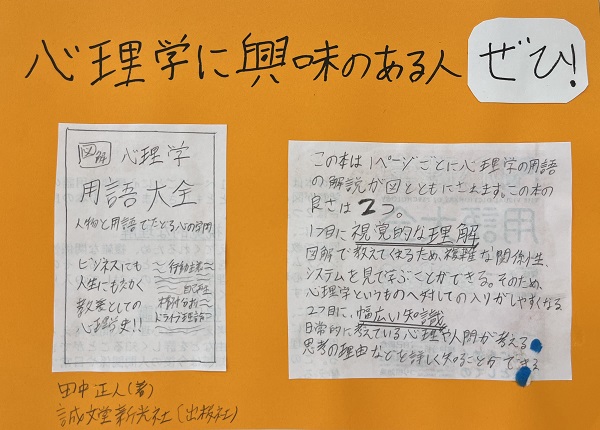 心理学に興味のある人 ぜひ!
図解 心理学
用語大全
人物と用語でたどる心の学問
ビジネスにも
人生にも欠かく
教養としての
心理学史!!
行動主義
自己心理
精神分析
ドライブ理論
この本は1ページごとに心理学の用語
の解説が図とともにされます。この本の
良さは2つ。
1つ目に視覚的な理解
図解で教えてくれるため、複雑な関係性、
システムを見て学ぶことができる。そのため、
心理学というものへ対しての入りがしやすくなる
2つ目に、幅広い知識
日常的に考えている心理や人間が考える
思考の理由などを詳しく知ることができる
田中正人(著)
誠文堂新光社(出版社)